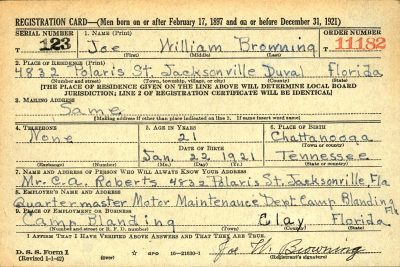 REGISTRATION CARD—(Men born on or after February 17, 1897 and on or before December 31, 1921)
SERIAL NUMBER 1. NAME (Print) ORDER NUMBER
T 123 Joe William Browning T 11182
(First) (Middle) (Last)
2. PLACE OF RESIDENCE (Print)
4832 Polaris St. Jacksonville Duval Florida
(Number and street) (Town, township, village, or city) (County) (State)
[THE PLACE OF RESIDENCE GIVEN ON THE LINE ABOVE WILL DETERMINE LOCAL BOARD
JURISDICTION; LINE 2 OF REGISTRATION CERTIFICATE WILL BE IDENTICAL]
3. MAILING ADDRESS
Same
[Mailing address if other than place indicated on line 2. If same insert word same]
4. TELEPHONE 5. AGE IN YEARS 6. PLACE OF BIRTH
None 21 Chattanooga
DATE OF BIRTH (Town or county)
Jan. 22 1921 Tennessee
(Exchange) (Number) (Mo.) (Day) (Yr.) (State or country)
7. NAME AND ADDRESS OF PERSON WHO WILL ALWAYS KNOW YOUR ADDRESS
Mr. C.A. Roberts 4832 Polaris St. Jacksonville, Fla
8. EMPLOYER'S NAME AND ADDRESS
Quartermaster Motor Maintenance Dept Camp Blanding Fla
9. PLACE OF EMPLOYMENT OR BUSINESS
Camp Blanding Clay Florida
(Number and street or R. F. D. number) (Town) (County) (State)
I AFFIRM THAT I HAVE VERIFIED ABOVE ANSWERS AND THAT THEY ARE TRUE.
D. S. S. Form 1 GPO 16—21630-1 Joe W. Browning
(Revised 1-1-42) (Registrant's signature)